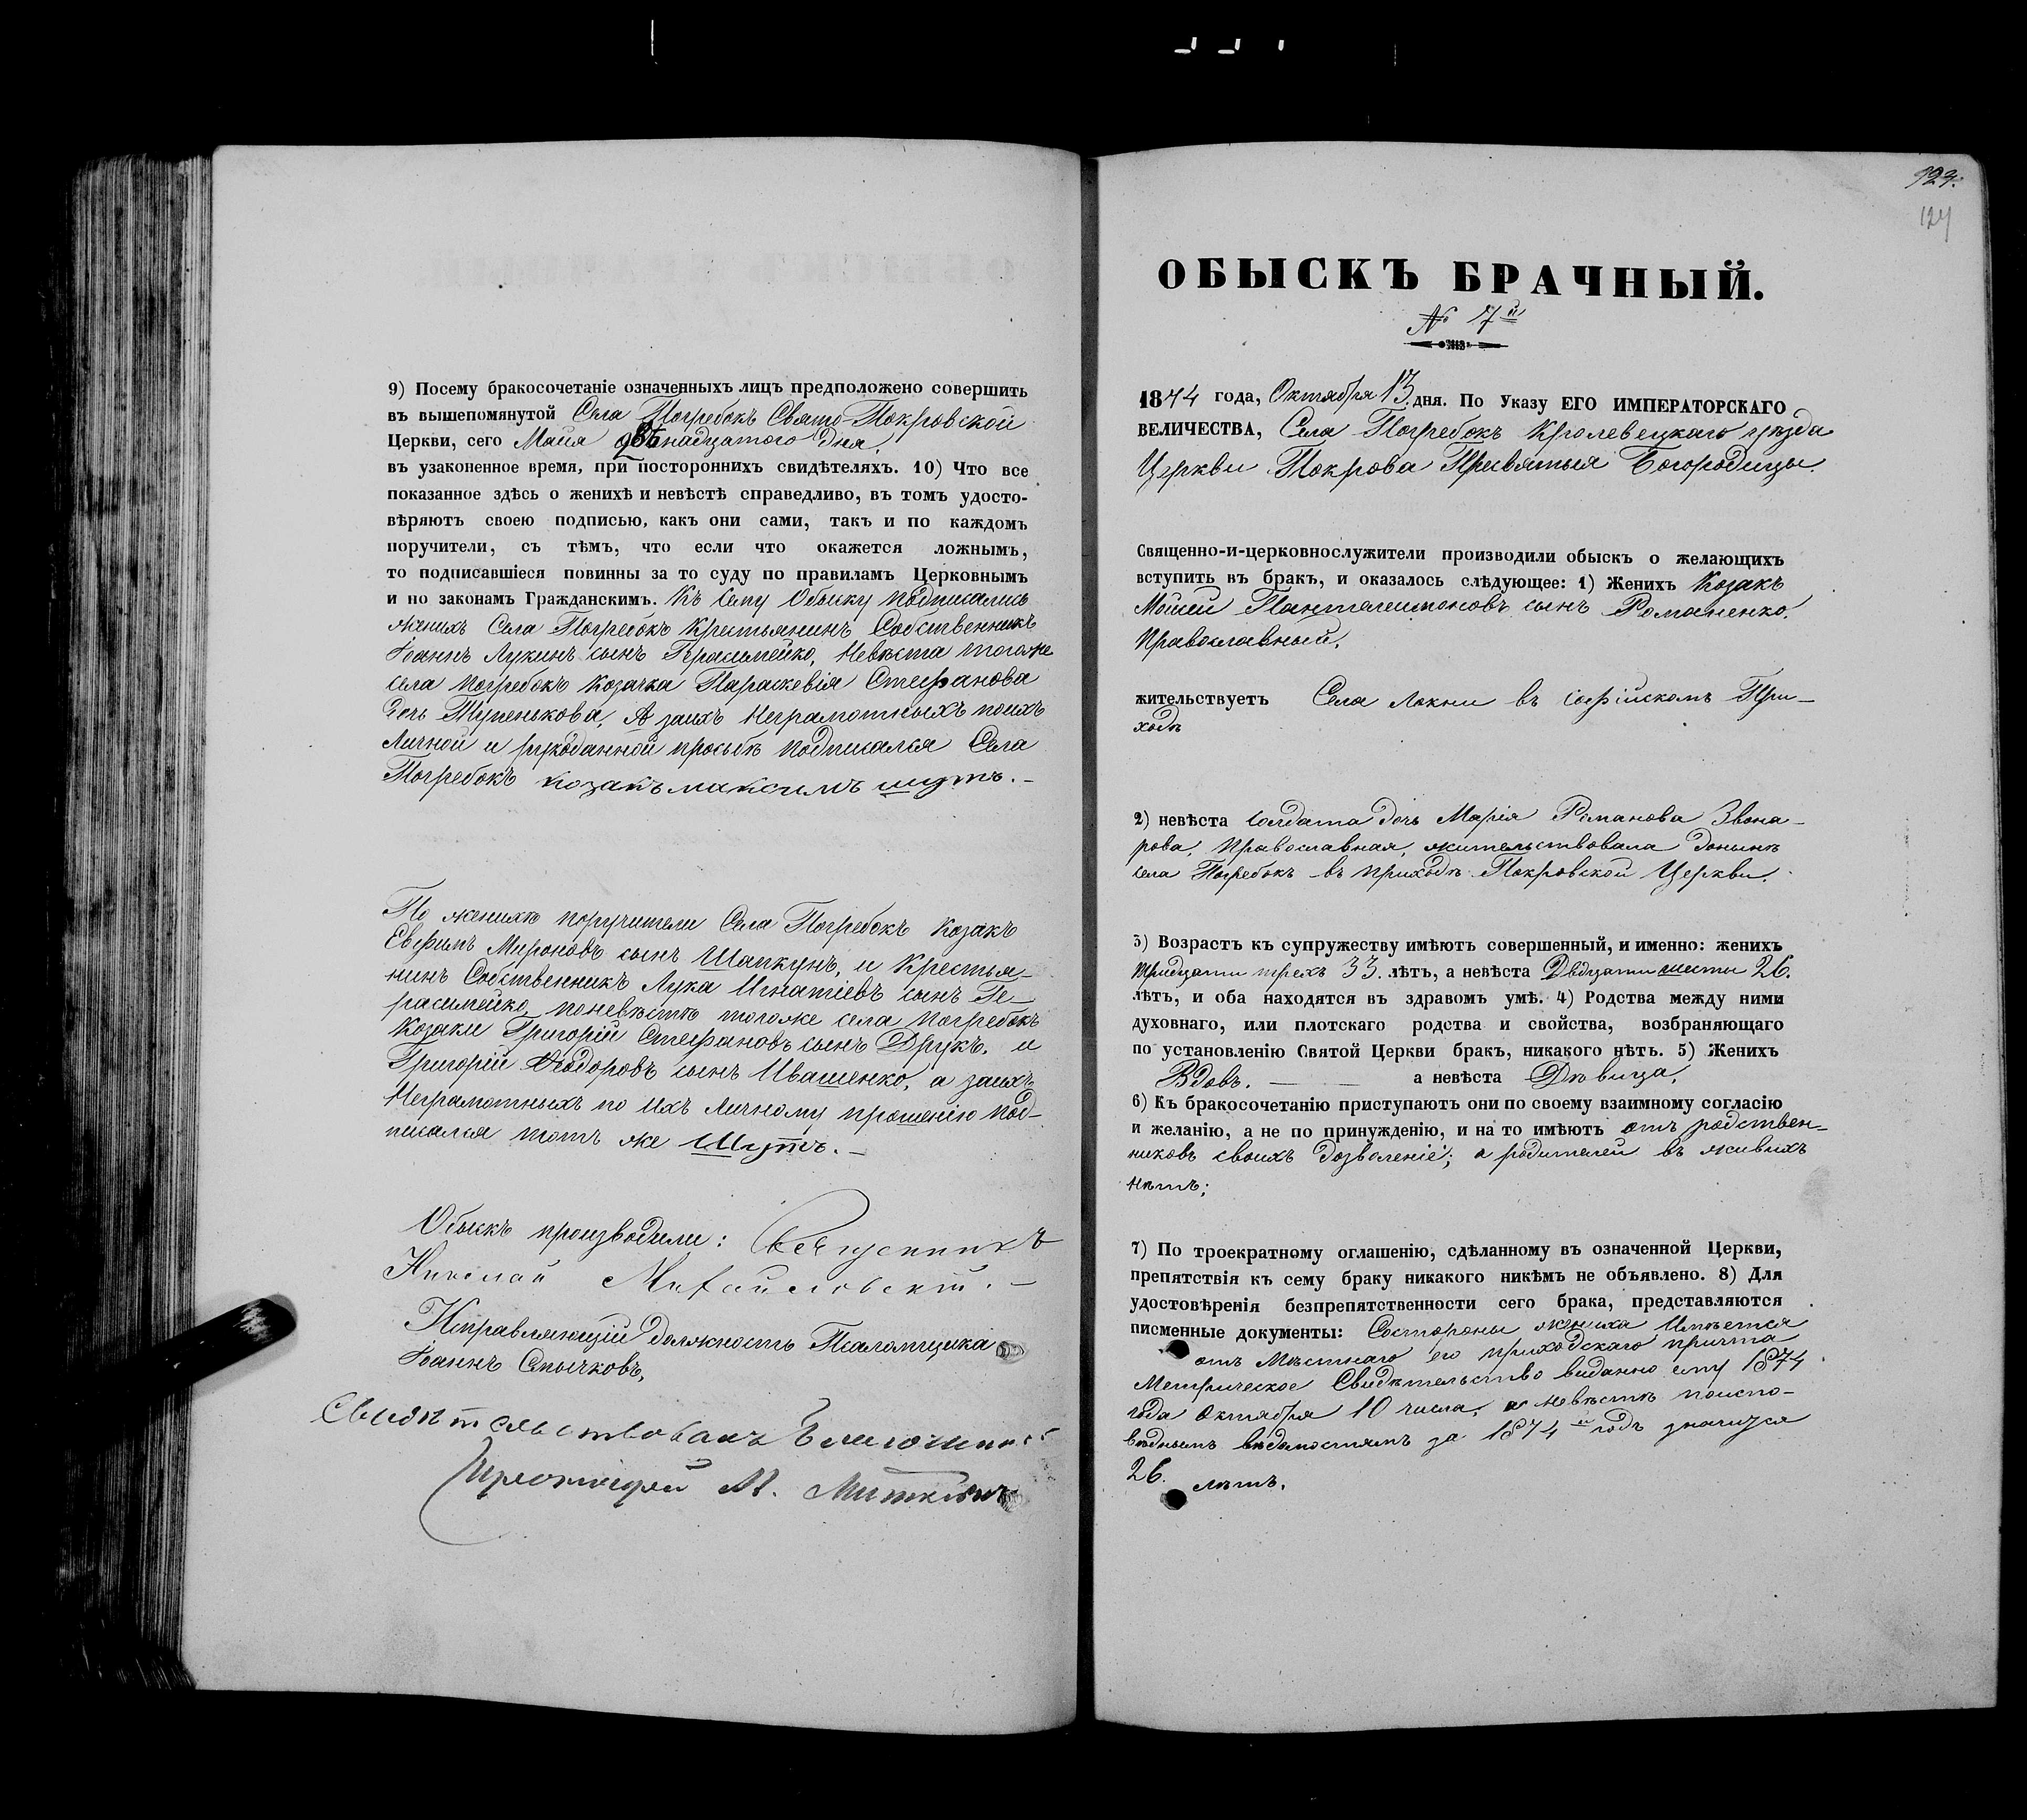 9) Посему бракосочетаніе означенныхъ лицъ предположено совершить
въ вышепомянутой Села Погребокъ Свято-Покровской
Церкви, сего Маія надцатого дня,
въ узаконенное время, при постороннихъ свидѣтеляхъ. 10) Что все
показанное здѣсь о женихѣ и невѣстѣ справедливо, въ томъ удосто-
вѣряютъ своею подписью, какъ они сами, такъ и по каждомъ
поручители, съ тѣмъ, что если что окажется ложнымъ,
то подписавшіеся повинны за то суду по правиламъ Церковнымъ
и по законамъ Гражданскимъ. Къ сему Обыску подписались
женихъ Села Погребокъ Крестьянинъ Собственникъ
Іоаннъ Лукинъ сынъ Герасимейко, Невѣста тогоже
села Погребокъ Козачка Параскевія Стефанова
дочь Тупенькова, А заихъ Неграмотныхъ поихъ
Личной и рукоданной просьбѣ подписался Села
Погребокъ козакъ максимъ шутъ.-
По женихѣ поручители Села Погребокъ Козакъ
Евфимъ Мироновъ сынъ Шапкунъ, и Крестья-
нинъ Собственникъ Лука Игнатіевъ сынъ Ге-
расимейко, поневѣстѣ тогоже села Погребокъ
Козаки Григорій Стефановъ сынъ Друкъ, и
Григорій Ѳеодоровъ сынъ Иващенко, а заихъ
Неграмотныхъ по ихъ Личному прошенію под-
писался тотъ же Шутъ.-
Обыскъ производили: Священникъ
Николай Михайловскій.-
Исправляющій должность Псаломщика
Іоаннъ Спычковъ,
Свидѣтельствовалъ Благочинный
Протоіерей М.
124
ОБЫСКЪ БРАЧНЫЙ.
№ 7й
1874 года, Октября 13 дня. По Указу ЕГО ИМПЕРАТОРСКАГО
ВЕЛИЧЕСТВА, Села Погребокъ Кролевецкаго уѣзда
Церкви Покрова Пресвятыя Богородицы
Священно-и-церковнослужители производили обыскъ о желающихъ
вступить въ бракъ, и оказалось слѣдующее: 1) Женихъ Козакъ
Моисей Пантелеимоновъ сынъ Романенко,
Православный,
жительствуетъ Села Локни въ Софійскомъ При-
ходѣ
2) невѣста Солдата дочь Марія Романова Звона-
рова, Православная, жительствовала донынѣ
села Погребокъ въ приходѣ Покровской Церкви.
3) Возрастъ къ супружеству имѣютъ совершенный, и именно: женихъ
тридцати трехъ 33. лѣтъ, а невѣста Двадцати шести 26.
лѣтъ, и оба находятся въ здравомъ умѣ. 4) Родства между ними
духовнаго, или плотскаго родства и свойства, возбраняющаго
по установленію Святой Церкви бракъ, никакого нѣтъ. 5) Женихъ
Вдовъ. — — а невѣста Дѣвица,
6) Къ бракосочетанію приступаютъ они по своему взаимному согласію
и желанію, а не по принужденію, и на то имѣютъ отъ родствен-
никовъ своихъ дозволеніе; а родителей въ живыхъ
нѣтъ;
7) По троекратному оглашенію, сдѣланному въ означенной Церкви,
препятствія къ сему браку никакого никѣмъ не объявлено. 8) Для
удостовѣренія безпрепятственности сего брака, представляются
писменные документы: Состороны жениха Имѣется
отъ Мѣстнаго его приходскаго причта
Метрическое Свидѣтельство виданно ему 1874
года Октября 10 числа, а невѣстѣ поиспо-
вѣднымъ вѣдомостямъ за 1874й годъ значится
26. лѣтъ.